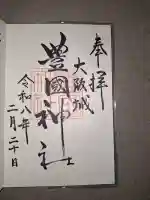 奉拝
大阪城
豊國神社
令和八年
二月二十日